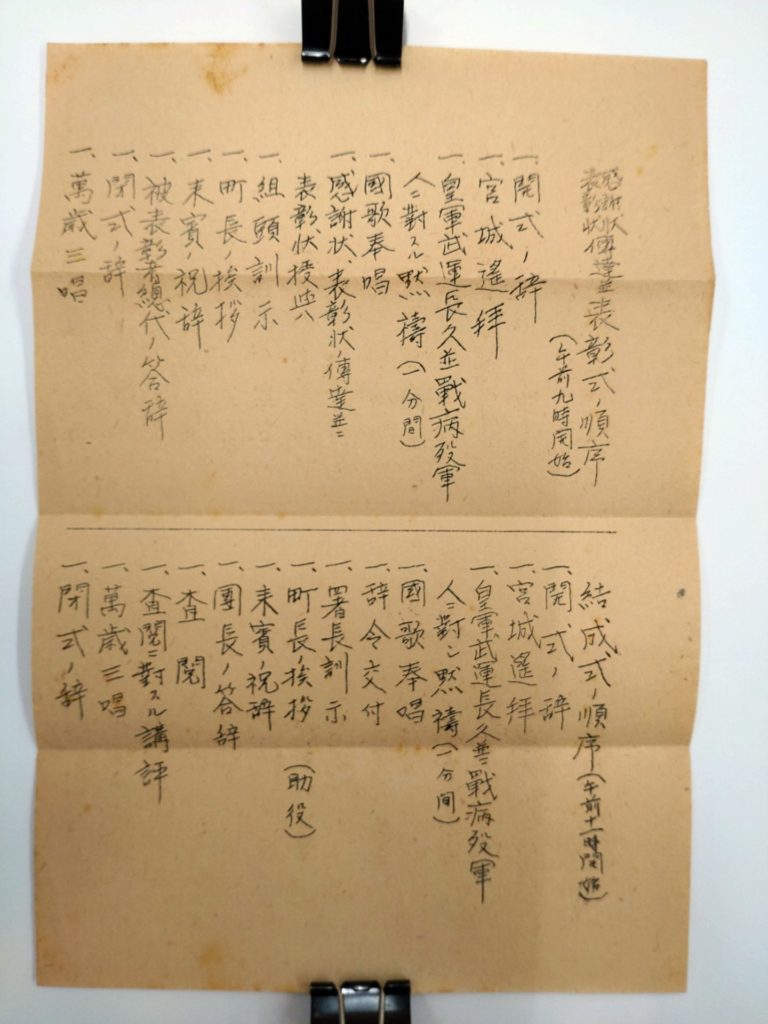 感謝状
表彰状傳達並表彰式ノ順序
(午前九時開始)
一、開式ノ辞
一、宮城遙拜
一、皇軍武運長久並戰病歿軍
人ニ對スル黙禱(一分間)
一、國歌奉唱
一、感謝状、表彰状ノ傳達並ニ
表彰状授与
一、組頭訓示
一、町長ノ挨拶
一、来賓ノ祝辞
一、被表彰者總代ノ答辞
一、閉式ノ辞
一、萬歳三唱
結成式ノ順序(午前十一時開始)
一、開式ノ辞
一、宮城遙拜
一、皇軍武運長久並ニ戰病歿軍
人ニ對シ黙禱(一分间)
一、國歌奉唱
一、辞令交付
一、署長訓示
一、町長ノ挨拶(助役)
一、来賓ノ祝辞
一、團長ノ答辞
一、査閲
一、査閲ニ對スル講評
一、萬歳三唱
一、閉式ノ辞